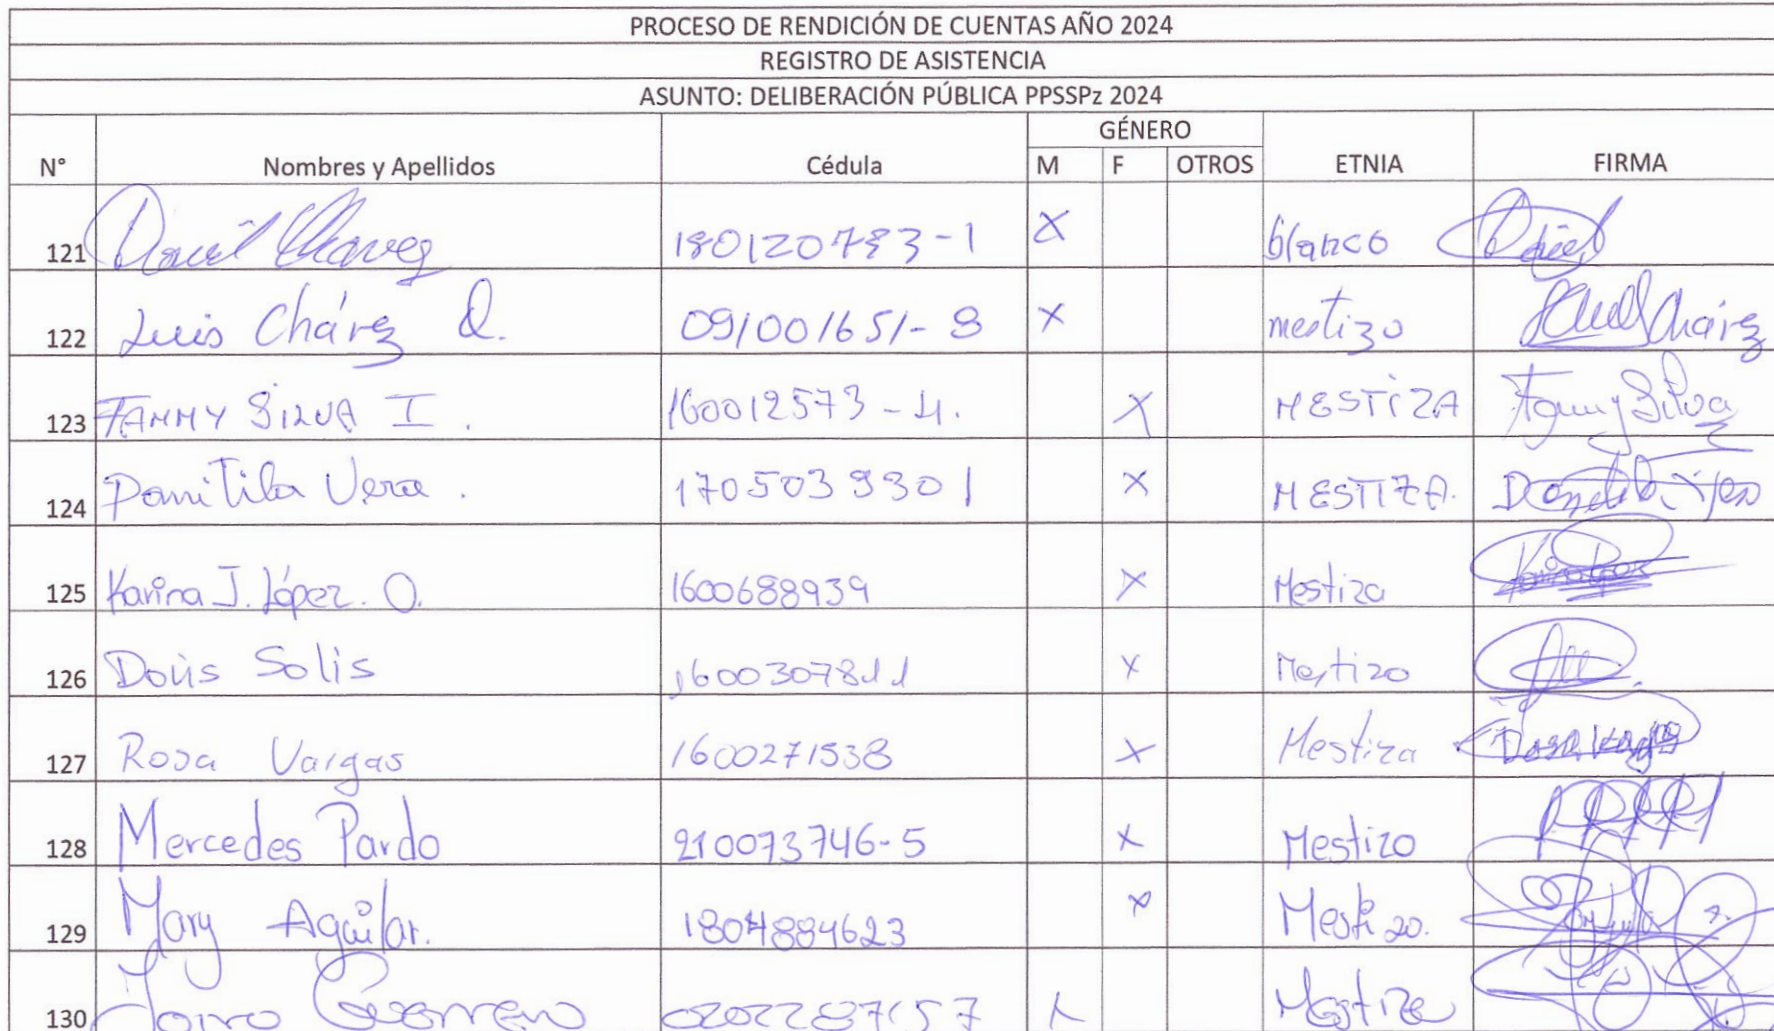 PROCESO DE RENDICIÓN DE CUENTAS AÑO 2024
REGISTRO DE ASISTENCIA
ASUNTO: DELIBERACIÓN PÚBLICA PPSSPz 2024
GÉNERO
N° Nombres y Apellidos Cédula M F OTROS ETNIA FIRMA
121 Chavez 180120783-1 X blanco
122 Luis Cháves Q. 091001651-8 X mestizo Chávez
123 FANNY SILVA I. 160012573-4. X MESTIZA Fanny Silva
124 Domitila Vera. 1705039301 X MESTIZA.
125 Karina J. López. O. 1600688939 X Mestiza
126 Doris Solis 1600307811 X Mestizo
127 Rosa Vargas 1600271538 X Mestiza Rosa Vargas
128 Mercedes Pardo 210073746-5 X Mestizo
129 Mary Aguilar. 1804884623 X Mestizo.
130 Guerrero X Mestize